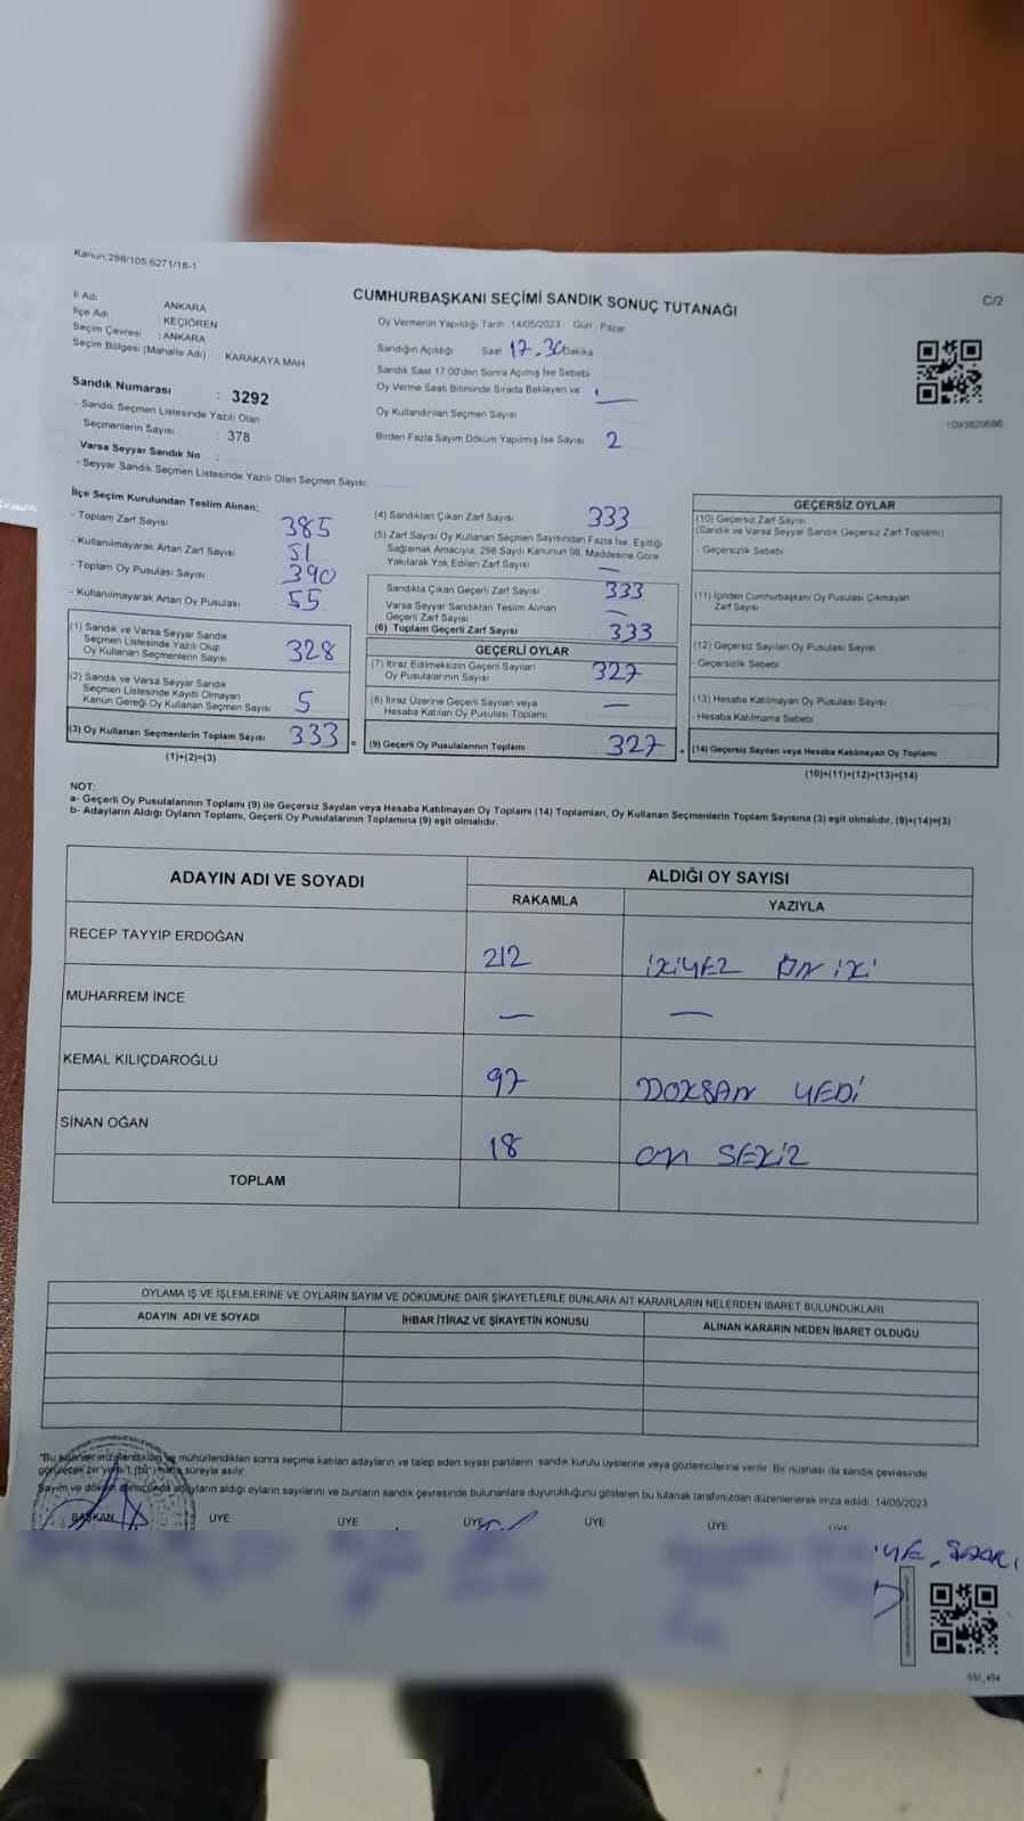 Kanun:298/105,6271/18-1
C/2
CUMHURBAŞKANI SEÇİMİ SANDIK SONUÇ TUTANAĞI
İl Adı ANKARA
İlçe Adı KEÇİÖREN
Seçim Çevresi : ANKARA
Seçim Bölgesi (Mahalle Adı) KARAKAYA MAH.
Oy Vermenin Yapıldığı Tarih: 14/05/2023 Gün: Pazar
Sandığın Açıldığı Saat 17.30 Dakika
Sandık Saat 17:00'den Sonra Açılmış İse Sebebi
Oy Verme Saati Bitiminde Sırada Bekleyen ve
Oy Kullandırılan Seçmen Sayısı
Birden Fazla Sayım Döküm Yapılmış İse Sayısı 2
Sandık Numarası : 3292
- Sandık Seçmen Listesinde Yazılı Olan
Seçmenlerin Sayısı : 378
Varsa Seyyar Sandık No :
- Seyyar Sandık Seçmen Listesinde Yazılı Olan Seçmen Sayısı:
İlçe Seçim Kurulundan Teslim Alınan;
- Toplam Zarf Sayısı 385
- Kullanılmayarak Artan Zarf Sayısı 51
- Toplam Oy Pusulası Sayısı 390
- Kullanılmayarak Artan Oy Pusulası 55
(1) Sandık ve Varsa Seyyar Sandık
Seçmen Listesinde Yazılı Olup
Oy Kullanan Seçmenlerin Sayısı 328
(2) Sandık ve Varsa Seyyar Sandık
Seçmen Listesinde Kayıtlı Olmayan
Kanun Gereği Oy Kullanan Seçmen Sayısı 5
(3) Oy Kullanan Seçmenlerin Toplam Sayısı 333 =
(1)+(2)=(3)
(4) Sandıktan Çıkan Zarf Sayısı 333
(5) Zarf Sayısı Oy Kullanan Seçmen Sayısından Fazla İse, Eşitliği
Sağlamak Amacıyla, 298 Sayılı Kanunun 98. Maddesine Göre
Yakılarak Yok Edilen Zarf Sayısı —
Sandıkta Çıkan Geçerli Zarf Sayısı 333
Varsa Seyyar Sandıktan Teslim Alınan
Geçerli Zarf Sayısı —
(6) Toplam Geçerli Zarf Sayısı 333
GEÇERLİ OYLAR
(7) İtiraz Edilmeksizin Geçerli Sayılan
Oy Pusulalarının Sayısı 327
(8) İtiraz Üzerine Geçerli Sayılan veya
Hesaba Katılan Oy Pusulası Toplamı —
(9) Geçerli Oy Pusulalarının Toplamı 327 +
GEÇERSİZ OYLAR
(10) Geçersiz Zarf Sayısı
(Sandık ve Varsa Seyyar Sandık Geçersiz Zarf Toplamı)
- Geçersizlik Sebebi
(11) İçinden Cumhurbaşkanı Oy Pusulası Çıkmayan
Zarf Sayısı
(12) Geçersiz Sayılan Oy Pusulası Sayısı
- Geçersizlik Sebebi
(13) Hesaba Katılmayan Oy Pusulası Sayısı
- Hesaba Katılmama Sebebi
(14) Geçersiz Sayılan veya Hesaba Katılmayan Oy Toplamı
(10)+(11)+(12)+(13)=(14)
NOT:
a- Geçerli Oy Pusulalarının Toplamı (9) ile Geçersiz Sayılan veya Hesaba Katılmayan Oy Toplamı (14) Toplamları, Oy Kullanan Seçmenlerin Toplam Sayısına (3) eşit olmalıdır. (9)+(14)=(3)
b- Adayların Aldığı Oyların Toplamı, Geçerli Oy Pusulalarının Toplamına (9) eşit olmalıdır.
ADAYIN ADI VE SOYADI ALDIĞI OY SAYISI
RAKAMLA YAZIYLA
RECEP TAYYİP ERDOĞAN 212 İKİYÜZ ON İKİ
MUHARREM İNCE — —
KEMAL KILIÇDAROĞLU 97 DOKSAN YEDİ
SİNAN OĞAN 18 ON SEKİZ
TOPLAM
OYLAMA İŞ VE İŞLEMLERİNE VE OYLARIN SAYIM VE DÖKÜMÜNE DAİR ŞİKAYETLERLE BUNLARA AİT KARARLARIN NELERDEN İBARET BULUNDUKLARI
ADAYIN ADI VE SOYADI İHBAR İTİRAZ VE ŞİKAYETİN KONUSU ALINAN KARARIN NEDEN İBARET OLDUĞU
mühürlendikten sonra seçime katılan adayların ve talep eden siyasi partilerin sandık kurulu üyelerine veya gözlemcilerine verilir. Bir nüshası da sandık çevresinde
görülecek bir yere 1 (bir) hafta süreyle asılır.
Sayım ve döküm sonucunda adayların aldığı oyların sayılarını ve bunların sandık çevresinde bulunanlara duyurulduğunu gösteren bu tutanak tarafımızdan düzenlenerek imza edildi. 14/05/2023
BAŞKAN ÜYE ÜYE ÜYE ÜYE ÜYE